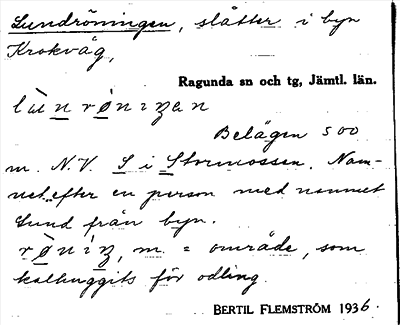 Lundröningen, slåtter i byn
Krokvåg,
Ragunda sn och tg, Jämtl. län.
lu̇nrø̀nıŋan
Belägen 500
m. N.V. S i Stormossen. Nam-
net efter en person med namnet
Lund från byn.
rø̀niŋ, m. = område, som
kalhuggits för odling.
BERTIL FLEMSTRÖM 1936.